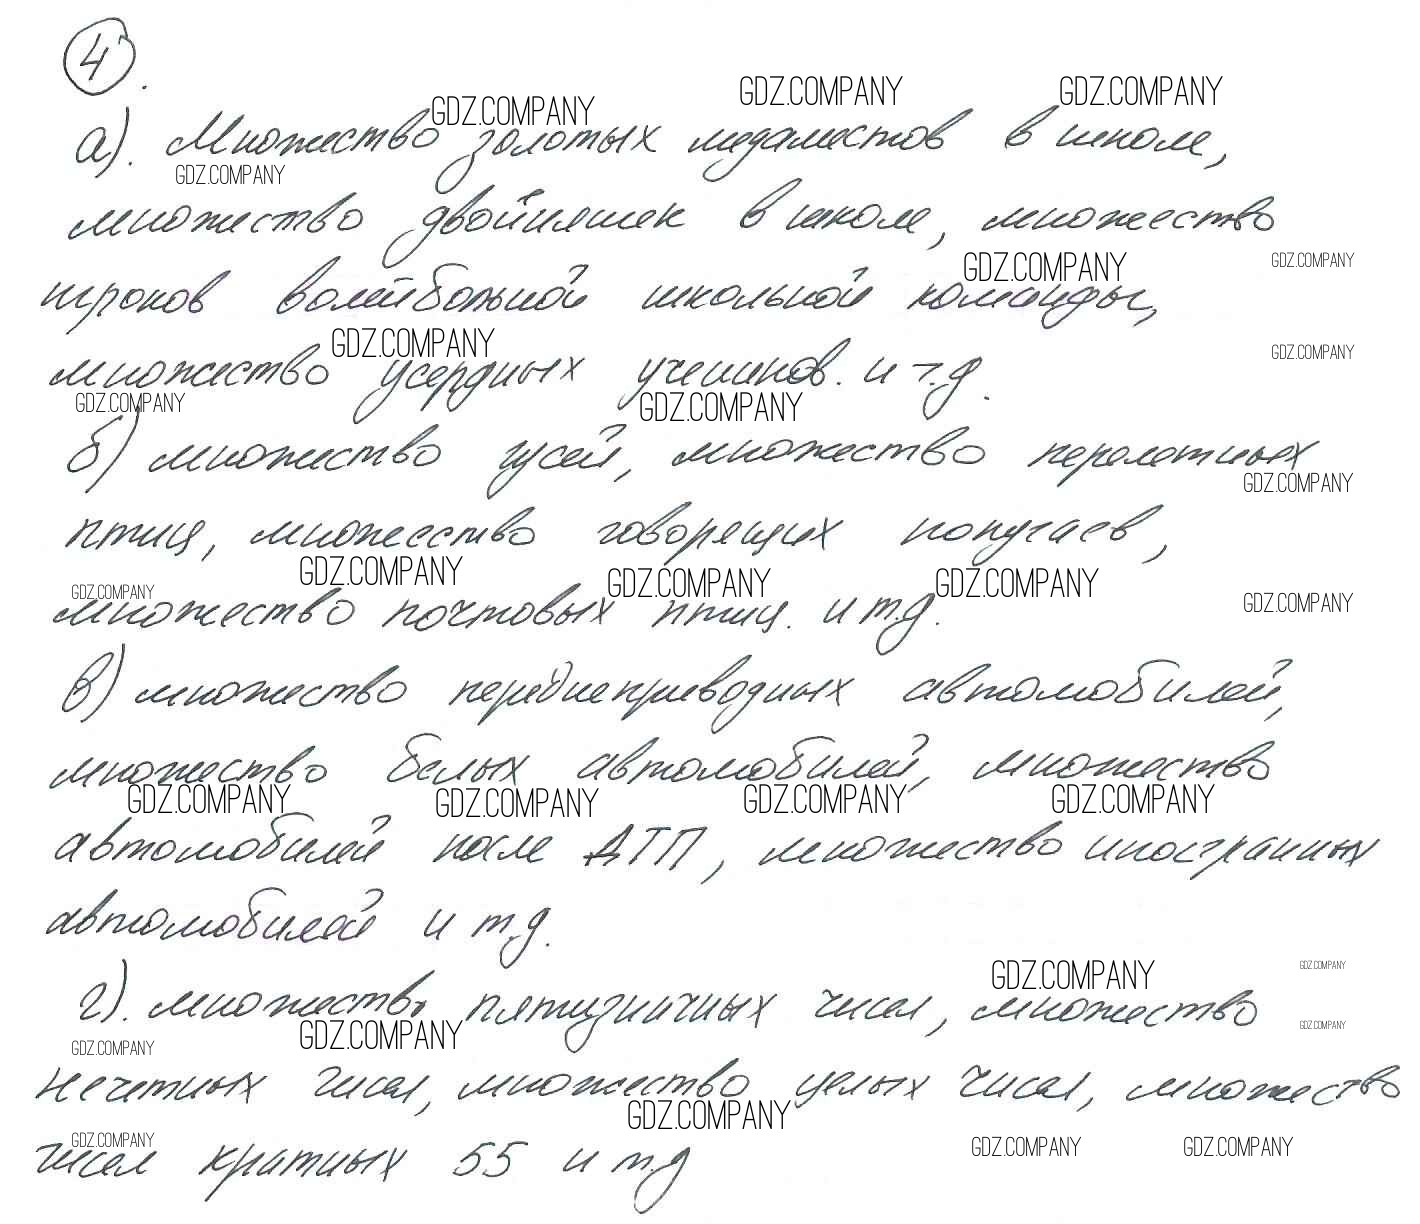 4.
GDZ.COMPANY GDZ.COMPANY GDZ.COMPANY
а). Множество золотых медалистов в школе,
GDZ.COMPANY
множество двойняшек в школе, множество
GDZ.COMPANY GDZ.COMPANY
игроков волейбольной школьной команды,
GDZ.COMPANY GDZ.COMPANY
множество усердных учеников. и т.д.
GDZ.COMPANY GDZ.COMPANY
б) множество гусей, множество перелетных
GDZ.COMPANY
птиц, множество говорящих попугаев,
GDZ.COMPANY GDZ.COMPANY GDZ.COMPANY GDZ.COMPANY GDZ.COMPANY
множество почтовых птиц. и т.д.
в) множество переднеприводных автомобилей,
множество белых автомобилей, множество
GDZ.COMPANY GDZ.COMPANY GDZ.COMPANY GDZ.COMPANY
автомобилей после ДТП, множество иностранных
автомобилей и т.д.
GDZ.COMPANY GDZ.COMPANY
г). множество пятизначных чисел, множество
GDZ.COMPANY GDZ.COMPANY GDZ.COMPANY
нечетных чисел, множество целых чисел, множество
GDZ.COMPANY
GDZ.COMPANY GDZ.COMPANY GDZ.COMPANY
чисел кратных 55 и т.д